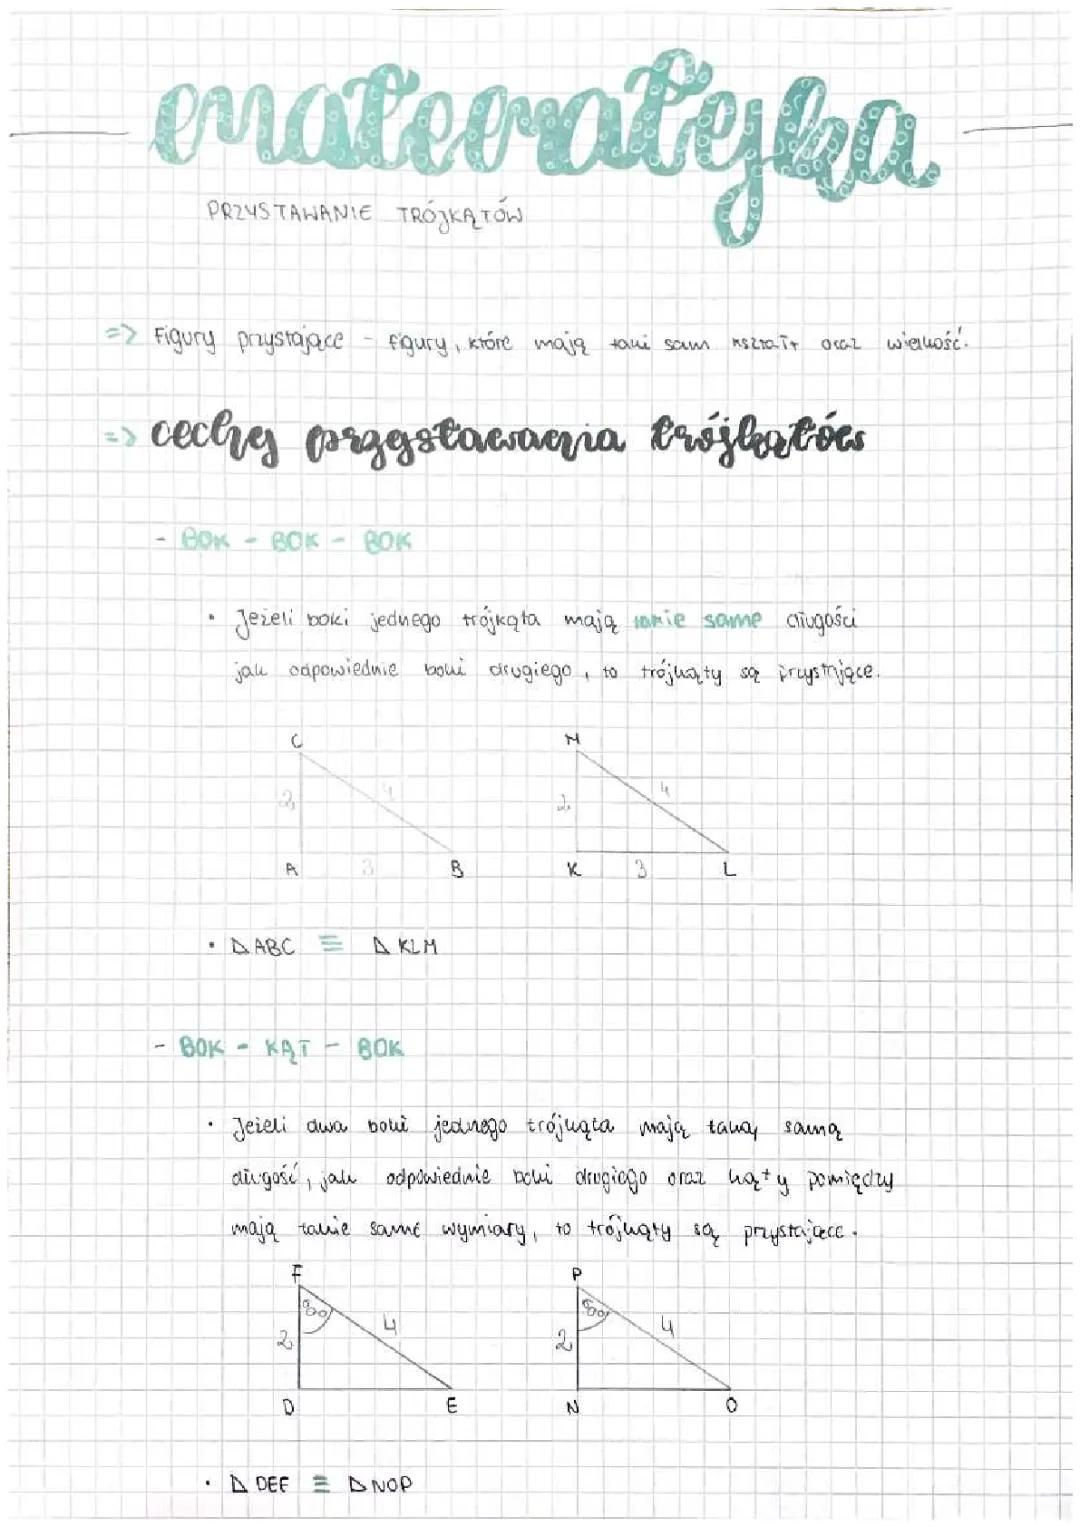 matematyka
PRZYSTAWANIE TRÓJKĄTÓW
=> Figury przystające - figury, które mają taki sam kształt oraz wielkość.
=> cechy przystawania trójkątów
- BOK - BOK - BOK
• Jeżeli boki jednego trójkąta mają takie same długości
jak odpowiednie boki drugiego, to trójkąty są przystające.
C
M
2
4
2
4
A 3 B
K 3 L
• Δ ABC ≡ Δ KLM
- BOK - KĄT - BOK
• Jeżeli dwa boki jednego trójkąta mają taką samą
długość, jak odpowiednie boki drugiego oraz kąty pomiędzy
mają takie same wymiary, to trójkąty są przystające.
F
P
80
80
2
4
2
4
D E
N O
• Δ DEF ≡ Δ NOP